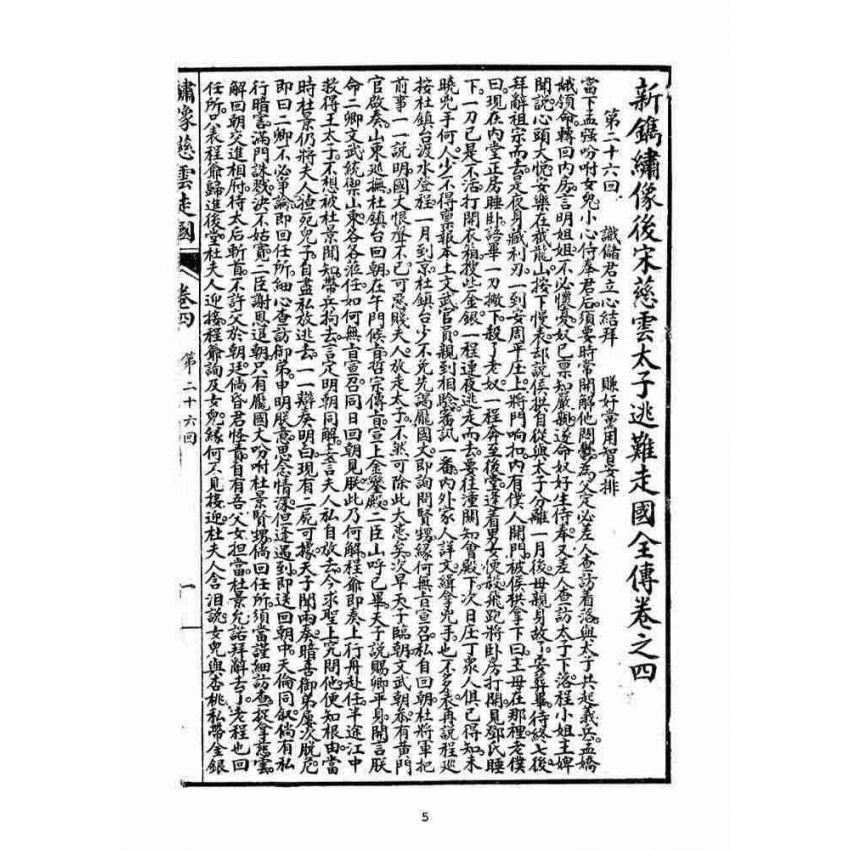 新鐫繡像後宋慈雲太子逃難走國全傳卷之四
第二十六回 識儲君立心結拜 賺奸黨用智安排
當下孟强吩咐女兒小心侍奉君后須要時常開解他悶鬱為父定必差人查訪着落與太子共起義兵孟嬌
娥領命轉回內房言明姐姐不必懷憂奴已禀知嚴親遂命奴好生侍奉又差人查訪太子下落程小姐主婢
聞說心頭大悅安樂在截龍山按下慢表却說侯拱自從與太子分離一月後母親身故了安葬畢待終七後
拜辭祖宗而去是夜身藏利刃一到安周平庄上將門响扣內有僕人開門被侯拱拿下曰主母在那裡老僕
曰現在內堂正房睡卧語畢一刀撇下殺了老奴一程奔至後堂逢着男女便殺飛跑將卧房打開見鄧氏睡
下一刀已是不活打開衣箱搜些金銀一程連夜逃走而去要往潼關知會殿下次日庄丁眾人俱已得知未
曉兇手何人少不得禀報本土文武官員親到相驗審試一番內外家人詳文緝拿兇手也不多表再說程廵
按杜鎮台渡水登程一月到京杜鎮台少不免先謁龐國丈即詢問賢甥緣何無旨宣召私自回朝杜將軍把
前事一一說明國丈恨聲不已可惡賤夫人放走太子不然可除此大患矣次早天子臨朝文武朝叅有黃門
官啟奏山東巡撫杜鎮台回朝在午門候旨哲宗傳旨宣上金鑾殿二臣山呼已畢天子說賜卿平身開言朕
命二卿文武統禦山東各各蒞任如何無旨宣召同日回朝見朕此乃何解程爺即奏上行舟赴任半途江中
救得王太子不想被杜景聞知帶兵拘去言定明朝同解妄言夫人私自放去今求聖上究問他便知根由當
時杜景仍將夫人逼死兒子自盡私放逃去一一辯奏明白現有二屍可據天子聞兩奏暗喜御弟屢次脫危
即曰二卿不必爭論即回任所細心查訪御弟申明朕意思念情深但逢遇到即送回朝中天倫同叙倘有私
行暗害滿門誅戮決不姑寬二臣謝恩退朝只有龐國丈吩咐杜景賢甥倘回任所須當謹細訪查捉拿慈雲
解回朝交進相府待太后斬首不許父於朝廷倘昏君怪責自有吾父女担當杜景允諾拜辭去了老程也回
任所只表程爺歸進後堂杜夫人迎接程爺詢及女兒緣何不見接迎杜夫人含泪說女兒與杏桃私帶金銀
繡像慈雲走國 卷四 第二十六回 一
5